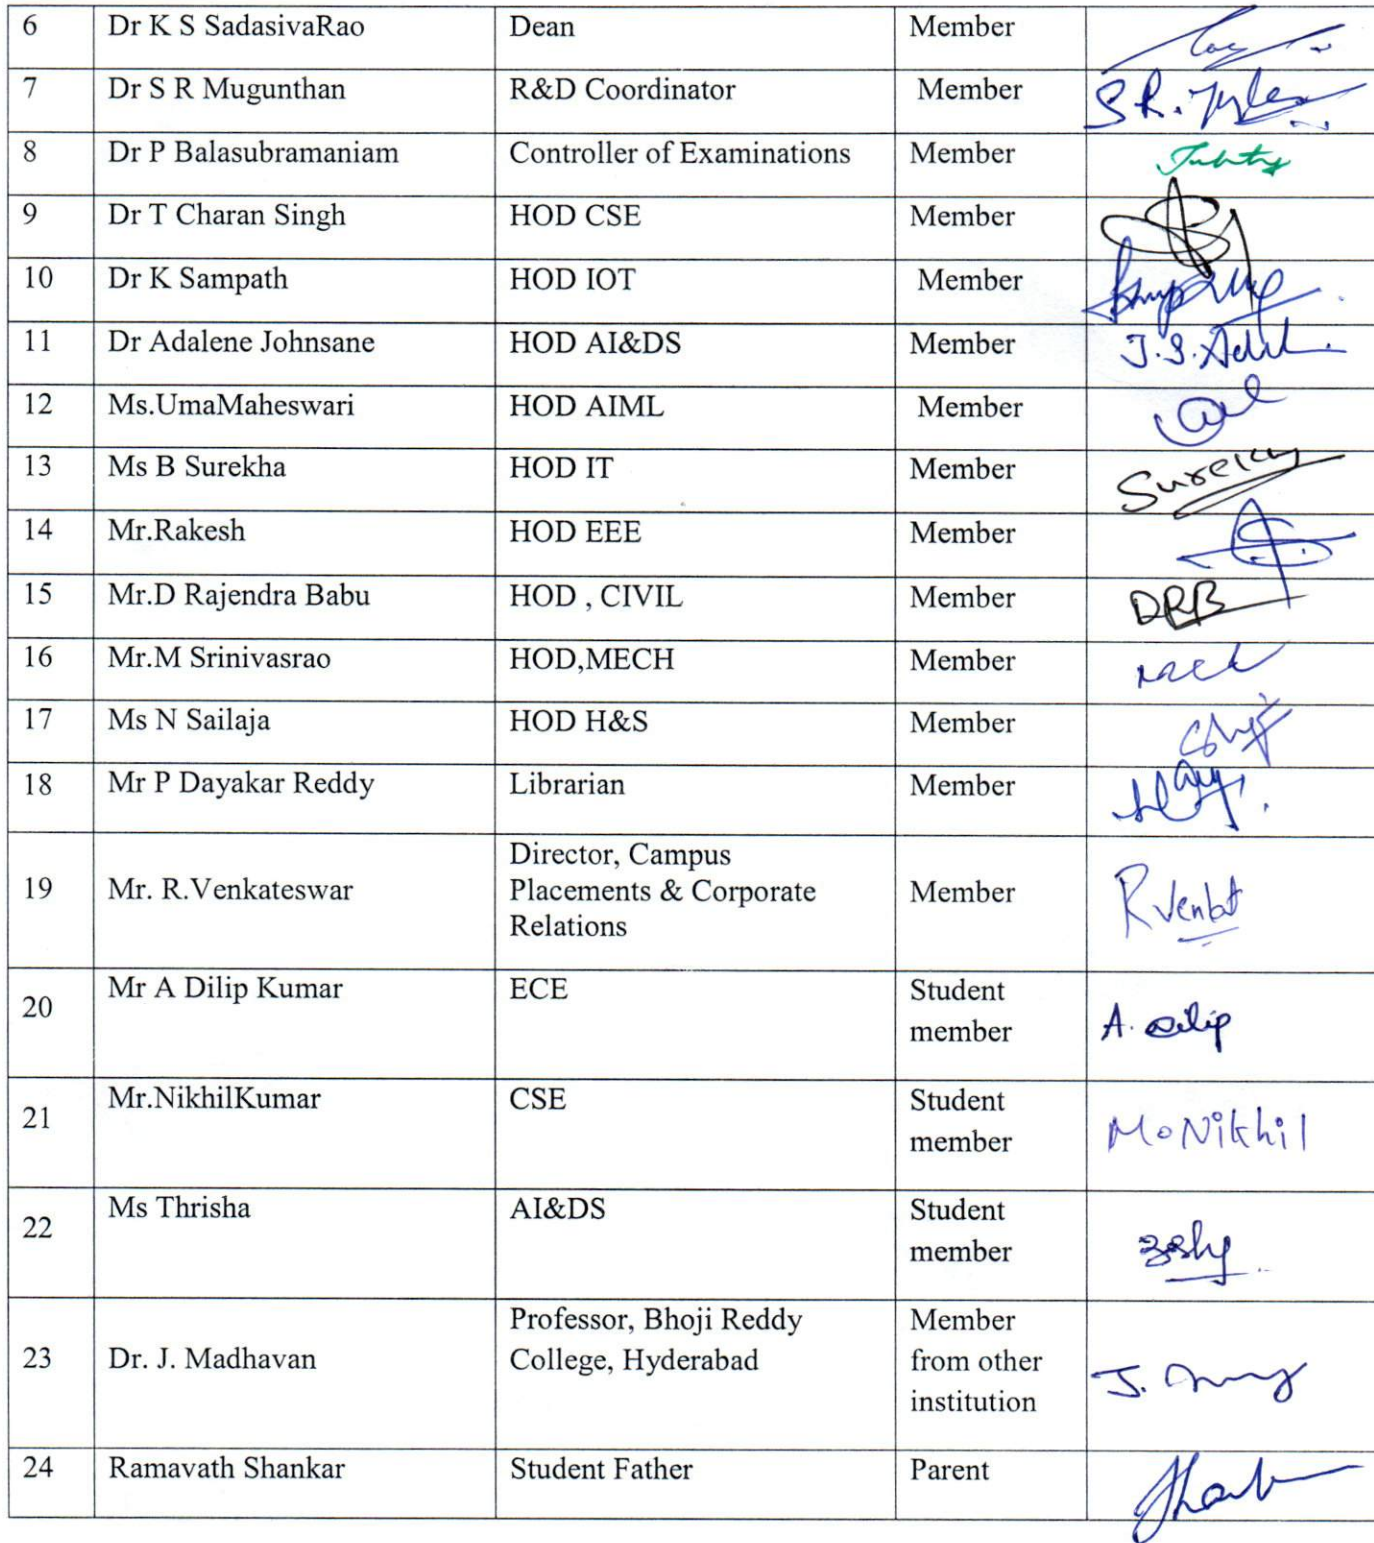 6 Dr K S SadasivaRao Dean Member
7 Dr S R Mugunthan R&D Coordinator Member S.R.
8 Dr P Balasubramaniam Controller of Examinations Member
9 Dr T Charan Singh HOD CSE Member
10 Dr K Sampath HOD IOT Member
11 Dr Adalene Johnsane HOD AI&DS Member J.S.
12 Ms.UmaMaheswari HOD AIML Member
13 Ms B Surekha HOD IT Member
14 Mr.Rakesh HOD EEE Member
15 Mr.D Rajendra Babu HOD , CIVIL Member DRB
16 Mr.M Srinivasrao HOD,MECH Member
17 Ms N Sailaja HOD H&S Member
18 Mr P Dayakar Reddy Librarian Member
Director, Campus
19 Mr. R.Venkateswar Placements & Corporate Member R Venkat
Relations
Mr A Dilip Kumar ECE Student
20 member A. Dilip
Mr.NikhilKumar CSE Student
21 member M.Nikhil
Ms Thrisha AI&DS Student
22 member
Professor, Bhoji Reddy Member
23 Dr. J. Madhavan College, Hyderabad from other J.
institution
24 Ramavath Shankar Student Father Parent